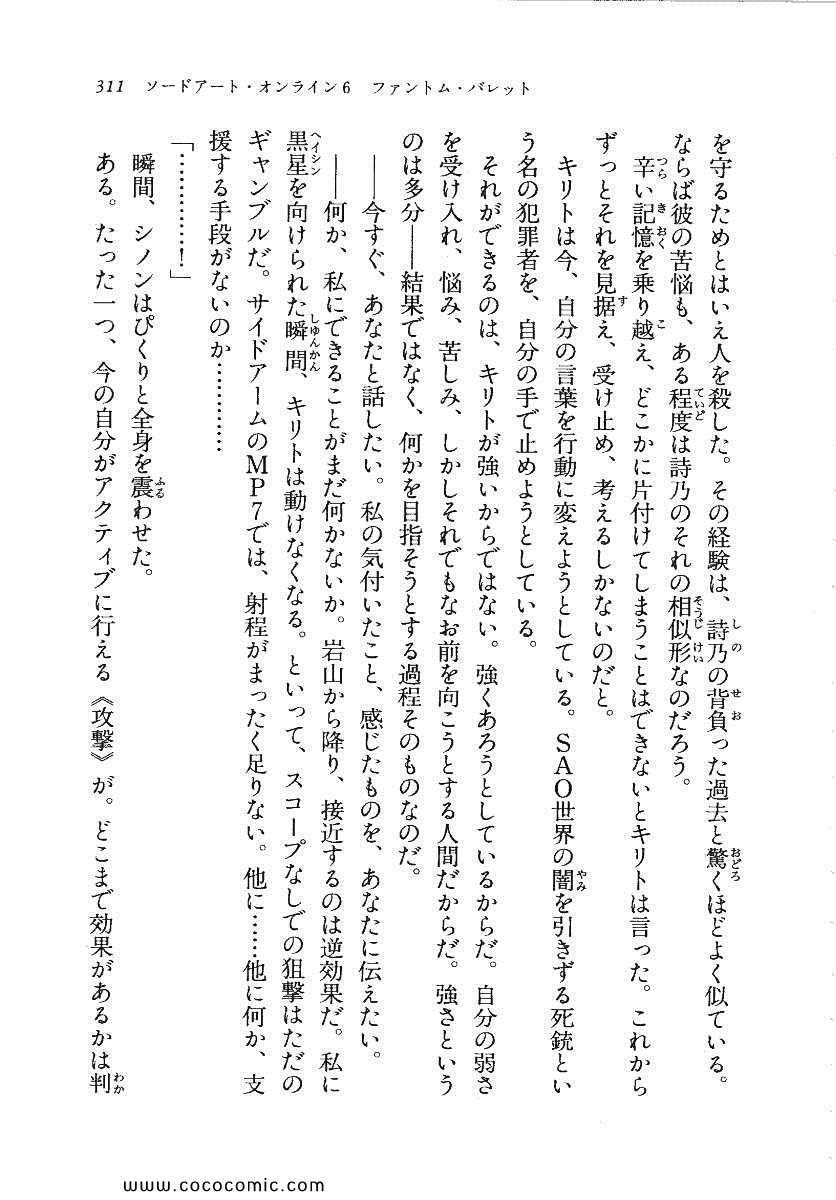 311　ソードアート・オンライン6　ファントム・バレット
を守るためとはいえ人を殺した。その経験は、詩乃の背負った過去と驚くほどよく似ている。
ならば彼の苦悩も、ある程度は詩乃のそれの相似形なのだろう。
　辛い記憶を乗り越え、どこかに片付けてしまうことはできないとキリトは言った。これから
ずっとそれを見据え、受け止め、考えるしかないのだと。
　キリトは今、自分の言葉を行動に変えようとしている。SAO世界の闇を引きずる死銃とい
う名の犯罪者を、自分の手で止めようとしている。
　それができるのは、キリトが強いからではない。強くあろうとしているからだ。自分の弱さ
を受け入れ、悩み、苦しみ、しかしそれでもなお前を向こうとする人間だからだ。強さという
のは多分――結果ではなく、何かを目指そうとする過程そのものなのだ。
　――今すぐ、あなたと話したい。私の気付いたこと、感じたものを、あなたに伝えたい。
　――何か、私にできることがまだ何かないか。岩山から降り、接近するのは逆効果だ。私に
黒星を向けられた瞬間、キリトは動けなくなる。といって、スコープなしでの狙撃はただの
ギャンブルだ。サイドアームのMP7では、射程がまったく足りない。他に……他に何か、支
援する手段がないのか…………
「…………！」
　瞬間、シノンはぴくりと全身を震わせた。
　ある。たった一つ、今の自分がアクティブに行える《攻撃》が。どこまで効果があるかは判
www.cococomic.com